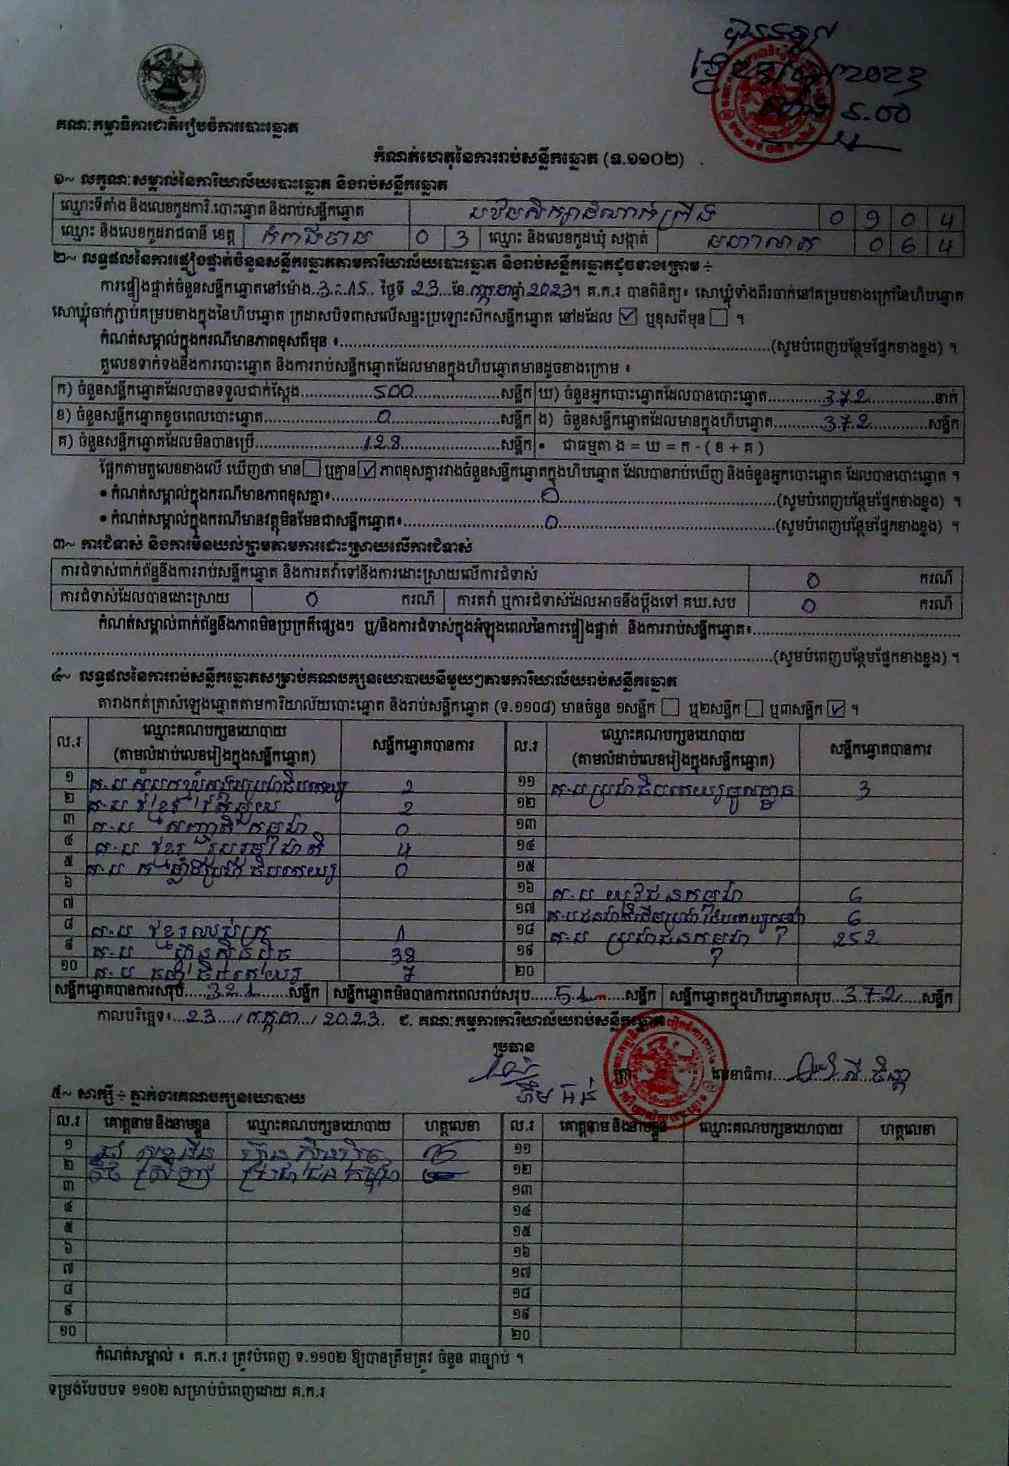 គណៈកម្មាធិការជាតិរៀបចំការបោះឆ្នោត
កំណត់ហេតុនៃការរាប់សន្លឹកឆ្នោត (ទ.១១០២)
១~ លក្ខណៈសម្គាល់នៃការិយាល័យបោះឆ្នោត និងរាប់សន្លឹកឆ្នោត
ឈ្មោះទីតាំង និងលេខកូដការិ.បោះឆ្នោត និងរាប់សន្លឹកឆ្នោត 0 9 0 4
ឈ្មោះ និងលេខកូដរាជធានី ខេត្ត កំពង់ចាម 0 3 ឈ្មោះ និងលេខកូដឃុំ សង្កាត់ 0 6 4
២~ លទ្ធផលនៃការផ្ទៀងផ្ទាត់ចំនួនសន្លឹកឆ្នោតតាមការិយាល័យបោះឆ្នោត និងរាប់សន្លឹកឆ្នោតដូចខាងក្រោម ៖
ការផ្ទៀងផ្ទាត់ចំនួនសន្លឹកឆ្នោតនៅម៉ោង 3:15 ថ្ងៃទី 23 ខែ កក្កដា ឆ្នាំ 2023។ គ.ក.រ បានពិនិត្យ៖ សោឃ្លុំទាំងពីរចាក់នៅគម្របខាងក្រៅនៃហិបឆ្នោត
សោឃ្លុំចាក់ភ្ជាប់គម្របខាងក្នុងនៃហិបឆ្នោត ក្រដាសបិទពាសលើសន្ទះប្រឡោះសឹកសន្លឹកឆ្នោត នៅដដែល ☑ ឬខុសពីមុន ☐ ។
កំណត់សម្គាល់ក្នុងករណីមានភាពខុសពីមុន ៖ (សូមបំពេញបន្ថែមផ្នែកខាងខ្នង) ។
តួលេខទាក់ទងនឹងការបោះឆ្នោត និងការរាប់សន្លឹកឆ្នោតដែលមានក្នុងហិបឆ្នោតមានដូចខាងក្រោម ៖
ក) ចំនួនសន្លឹកឆ្នោតដែលបានទទួលជាក់ស្តែង 500 សន្លឹក ឃ) ចំនួនអ្នកបោះឆ្នោតដែលបានបោះឆ្នោត 372 នាក់
ខ) ចំនួនសន្លឹកឆ្នោតខូចពេលបោះឆ្នោត 0 សន្លឹក ង) ចំនួនសន្លឹកឆ្នោតដែលមានក្នុងហិបឆ្នោត 372 សន្លឹក
គ) ចំនួនសន្លឹកឆ្នោតដែលមិនបានប្រើ 128 សន្លឹក • ជាធម្មតា ង = ឃ = ក - ( ខ + គ )
ផ្អែកតាមតួលេខខាងលើ ឃើញថា មាន ☐ ឬគ្មាន ☑ ភាពខុសគ្នារវាងចំនួនសន្លឹកឆ្នោតក្នុងហិបឆ្នោត ដែលបានរាប់ឃើញ និងចំនួនអ្នកបោះឆ្នោត ដែលបានបោះឆ្នោត ។
• កំណត់សម្គាល់ក្នុងករណីមានភាពខុសគ្នា៖ 0 (សូមបំពេញបន្ថែមផ្នែកខាងខ្នង) ។
• កំណត់សម្គាល់ក្នុងករណីមានវត្ថុមិនមែនជាសន្លឹកឆ្នោត៖ 0 (សូមបំពេញបន្ថែមផ្នែកខាងខ្នង) ។
៣~ ការជំទាស់ និងការមិនយល់ព្រមតាមការដោះស្រាយលើការជំទាស់
ការជំទាស់ពាក់ព័ន្ធនឹងការរាប់សន្លឹកឆ្នោត និងការតវ៉ាទៅនឹងការដោះស្រាយលើការជំទាស់ 0 ករណី
ការជំទាស់ដែលបានដោះស្រាយ 0 ករណី ការតវ៉ា ឬការជំទាស់ដែលអាចនឹងប្តឹងទៅ គឃ.សប 0 ករណី
កំណត់សម្គាល់ពាក់ព័ន្ធនឹងភាពមិនប្រក្រតីផ្សេងៗ ឬ/និងការជំទាស់ក្នុងអំឡុងពេលនៃការផ្ទៀងផ្ទាត់ និងការរាប់សន្លឹកឆ្នោត៖
(សូមបំពេញបន្ថែមផ្នែកខាងខ្នង) ។
៤~ លទ្ធផលនៃការរាប់សន្លឹកឆ្នោតសម្រាប់គណបក្សនយោបាយនីមួយៗតាមការិយាល័យរាប់សន្លឹកឆ្នោត
តារាងកត់ត្រាសំឡេងឆ្នោតតាមការិយាល័យបោះឆ្នោត និងរាប់សន្លឹកឆ្នោត (ទ.១១០៨) មានចំនួន ១សន្លឹក ☐ ឬ២សន្លឹក ☐ ឬ៣សន្លឹក ☑ ។
ល.រ ឈ្មោះគណបក្សនយោបាយ (តាមលំដាប់លេខរៀងក្នុងសន្លឹកឆ្នោត) សន្លឹកឆ្នោតបានការ ល.រ ឈ្មោះគណបក្សនយោបាយ (តាមលំដាប់លេខរៀងក្នុងសន្លឹកឆ្នោត) សន្លឹកឆ្នោតបានការ
១ 2 ១១ 3
២ 2 ១២
៣ គ.ប សញ្ជាតិកម្ពុជា 0 ១៣
៤ គ.ប ខ្មែររួបរួមជាតិ 4 ១៤
៥ 0 ១៥
៦ ១៦ គ.ប យុវជនកម្ពុជា 6
៧ ១៧ 6
៨ គ.ប ខ្មែរឈប់ក្រ 1 ១៨ គ.ប ប្រជាជនកម្ពុជា 252
៩ គ.ប ហ៊្វុនស៊ិនប៉ិច 38 ១៩
១០ 7 ២០
សន្លឹកឆ្នោតបានការសរុប 321 សន្លឹក សន្លឹកឆ្នោតមិនបានការពេលរាប់សរុប 51 សន្លឹក សន្លឹកឆ្នោតក្នុងហិបឆ្នោតសរុប 372 សន្លឹក
កាលបរិច្ឆេទ៖ 23 / កក្កដា / 2023 ជ. គណៈកម្មការការិយាល័យរាប់សន្លឹកឆ្នោត
ប្រធាន
លេខាធិការ
៥~ សាក្សី ៖ ភ្នាក់ងារគណបក្សនយោបាយ
ល.រ គោត្តនាម និងនាមខ្លួន ឈ្មោះគណបក្សនយោបាយ ហត្ថលេខា ល.រ គោត្តនាម និងនាមខ្លួន ឈ្មោះគណបក្សនយោបាយ ហត្ថលេខា
១ ហ៊្វុនស៊ិនប៉ិច ១១
២ ប្រជាជនកម្ពុជា ១២
៣ ១៣
៤ ១៤
៥ ១៥
៦ ១៦
៧ ១៧
៨ ១៨
៩ ១៩
១០ ២០
កំណត់សម្គាល់ ៖ គ.ក.រ ត្រូវបំពេញ ទ.១១០២ ឱ្យបានត្រឹមត្រូវ ចំនួន ៣ច្បាប់ ។
ទម្រង់បែបបទ ១១០២ សម្រាប់បំពេញដោយ គ.ក.រ